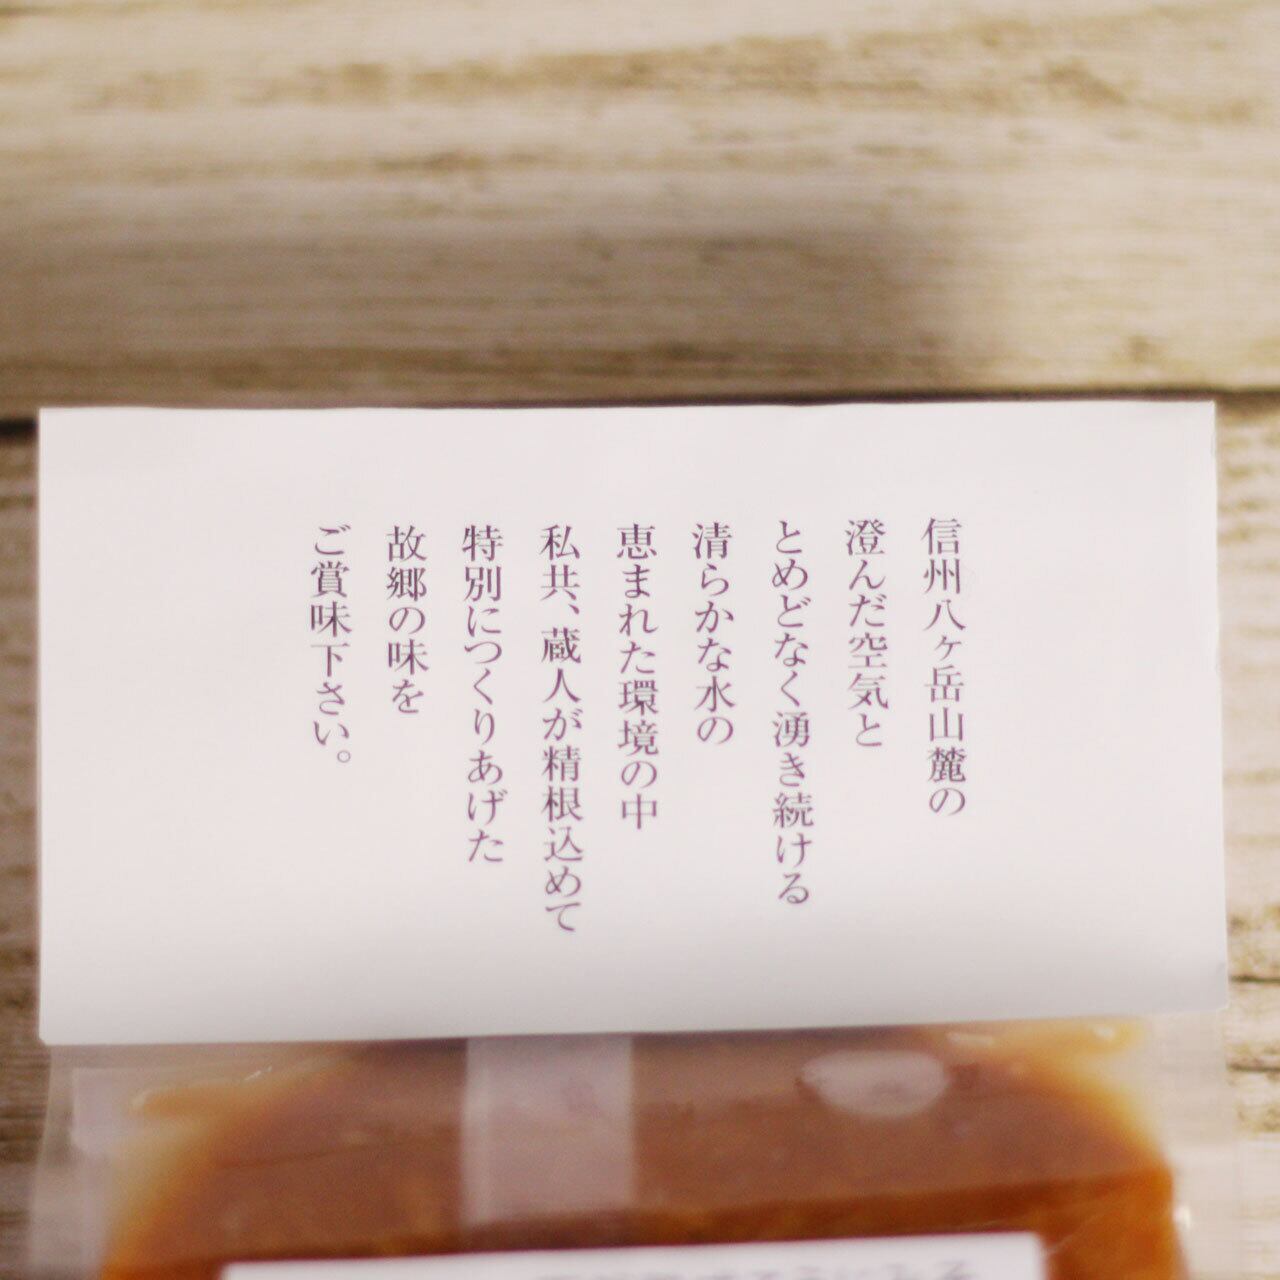 信州八ヶ岳山麓の
澄んだ空気と
とめどなく湧き続ける
清らかな水の
恵まれた環境の中
私共、蔵人が精根込めて
特別につくりあげた
故郷の味を
ご賞味下さい。